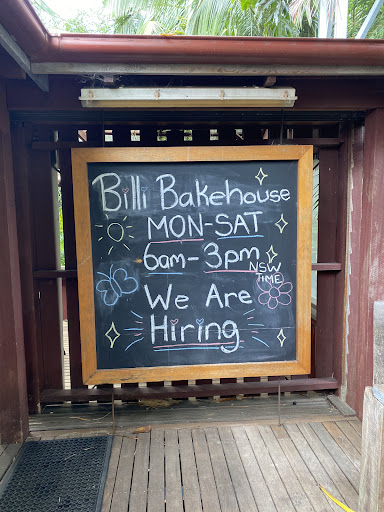 Billi Bakehouse
MON-SAT
6am-3pm
NSW
TIME
We Are
Hiring